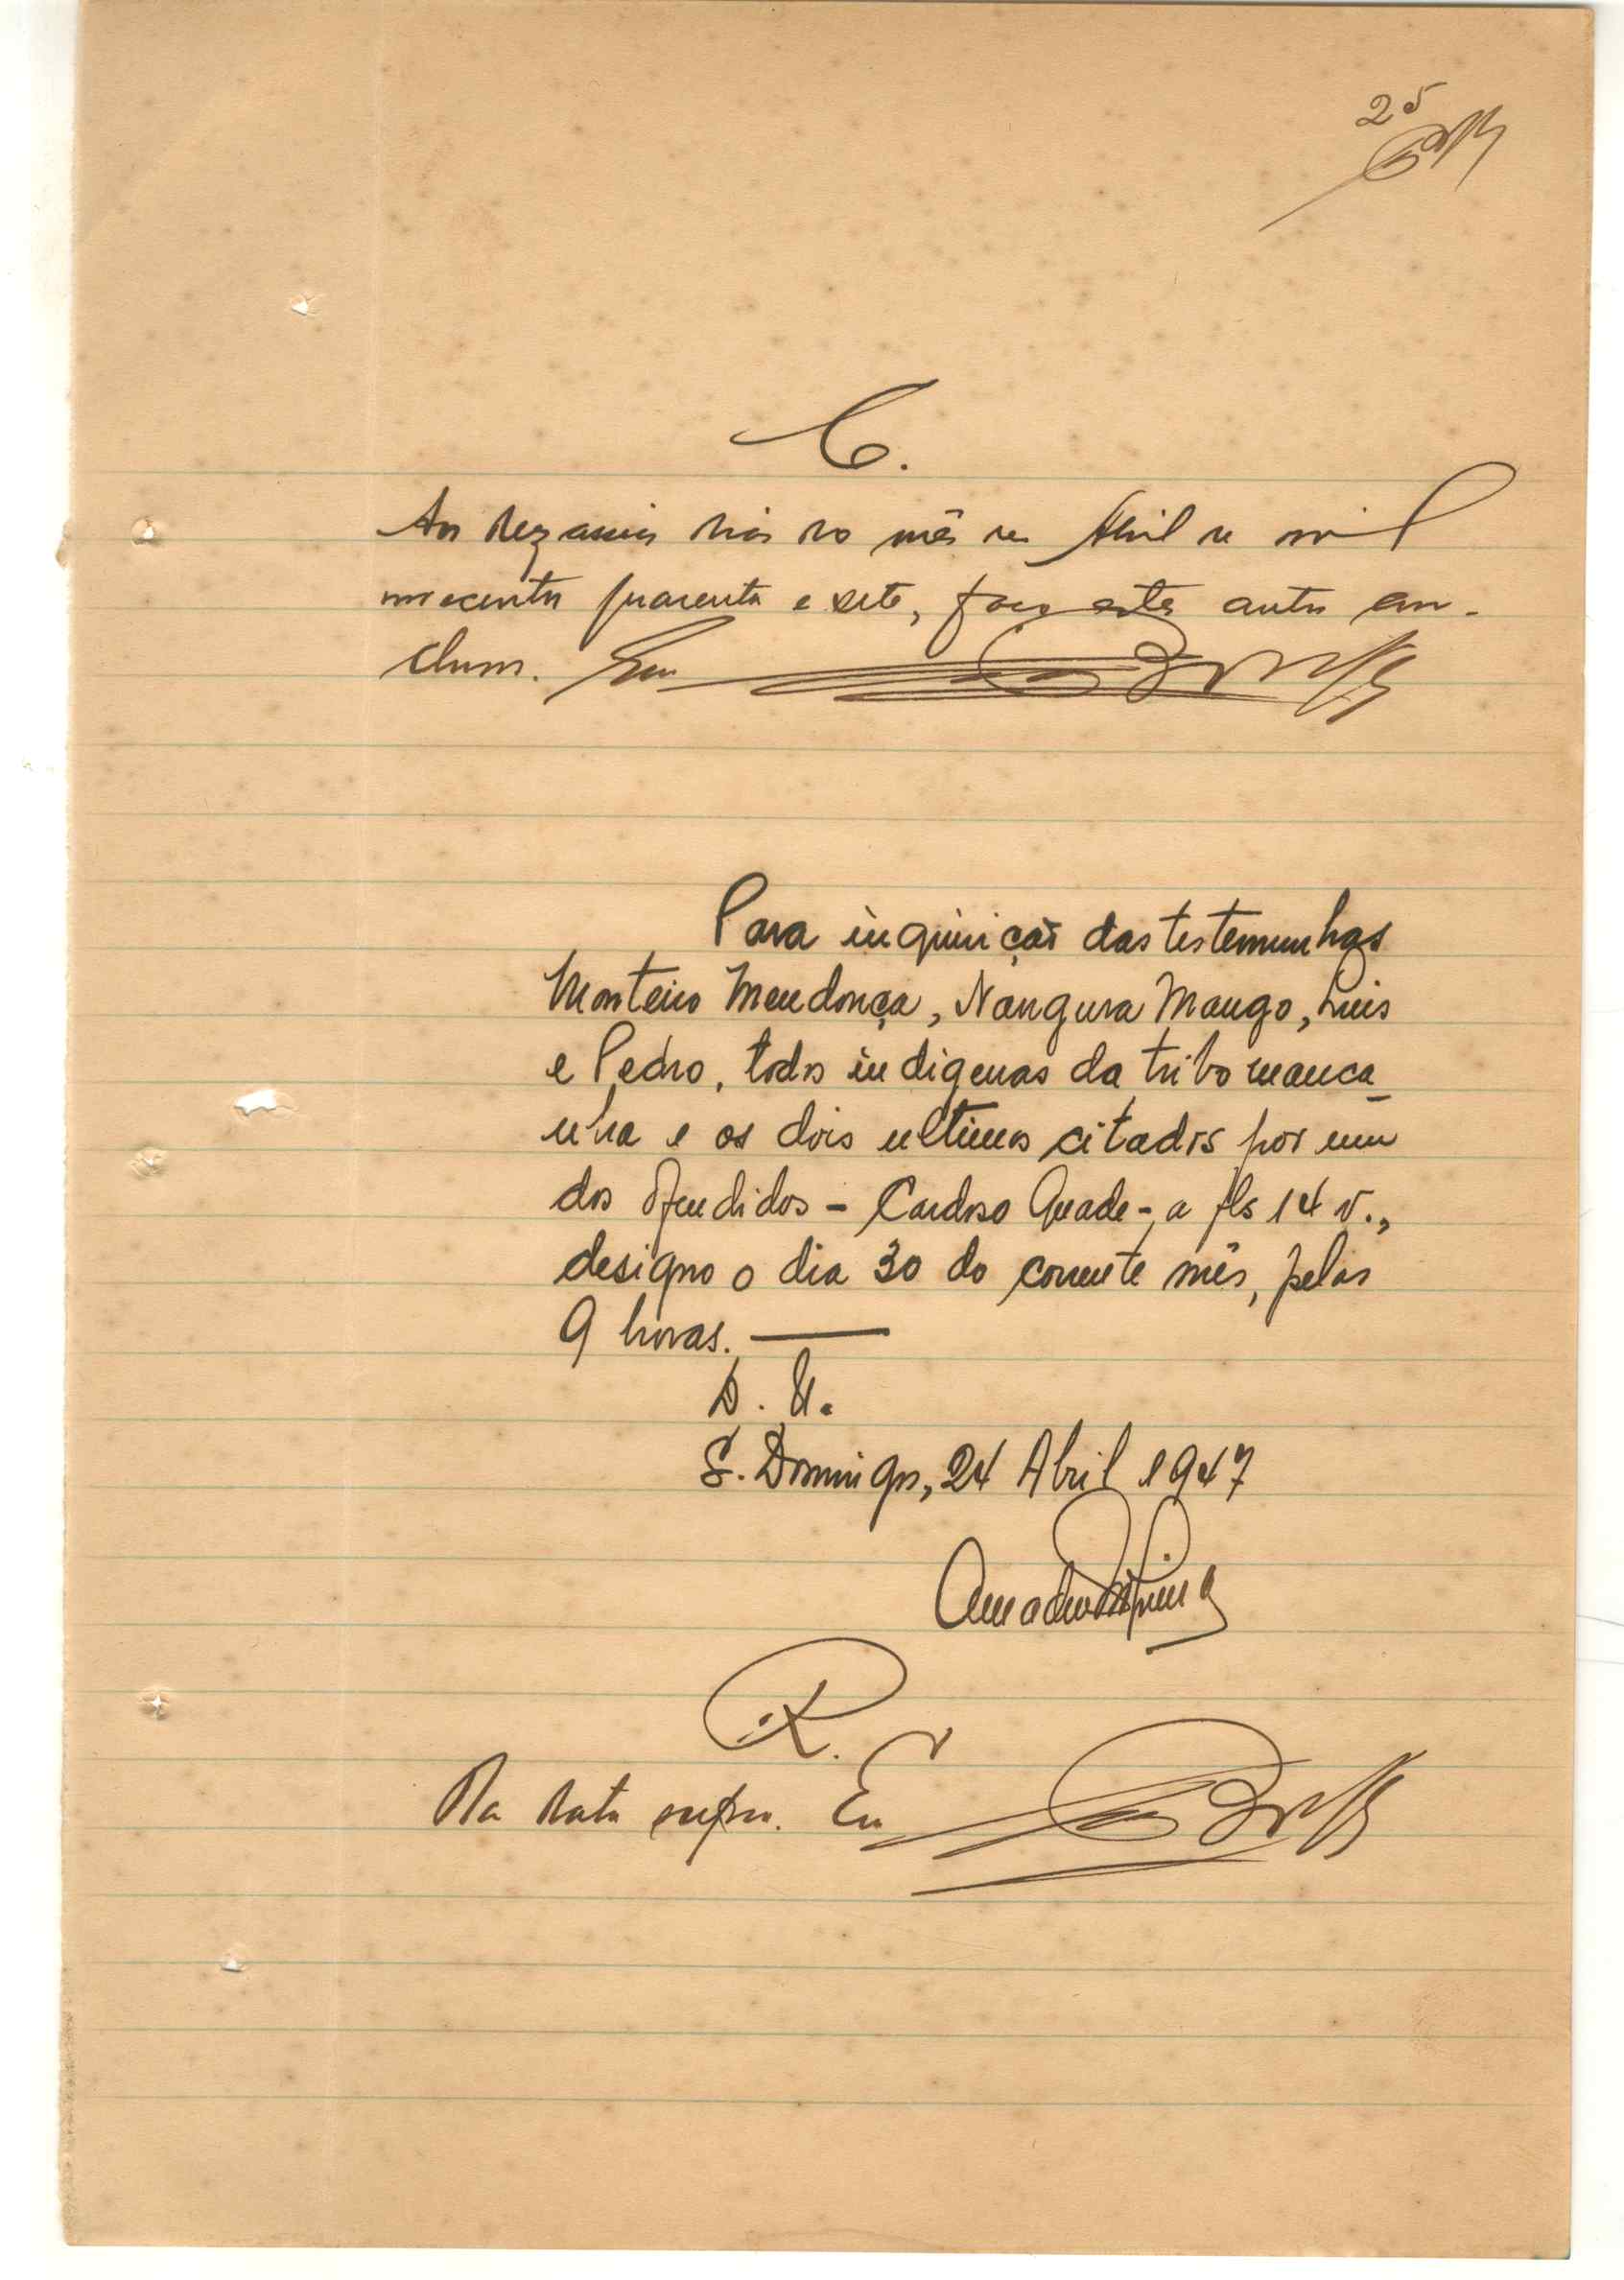 25
C.
Aos dezasseis dias do mês de Abril de mil
novecentos quarenta e sete, faço estes autos con-
clusos. Eu
Para inquirição das testemunhas
Monteiro Mendonça, Nangura Mango, Luis
e Pedro, todos indigenas da tribo manca_
nha e os dois ultimos citados por um
dos ofendidos - Cardoso Quade -, a fls 14 v.,
designo o dia 30 do corrente mês, pelas
9 horas.
D. U.
S. Domingos, 24 Abril 1947
R.
Na data supra. Eu